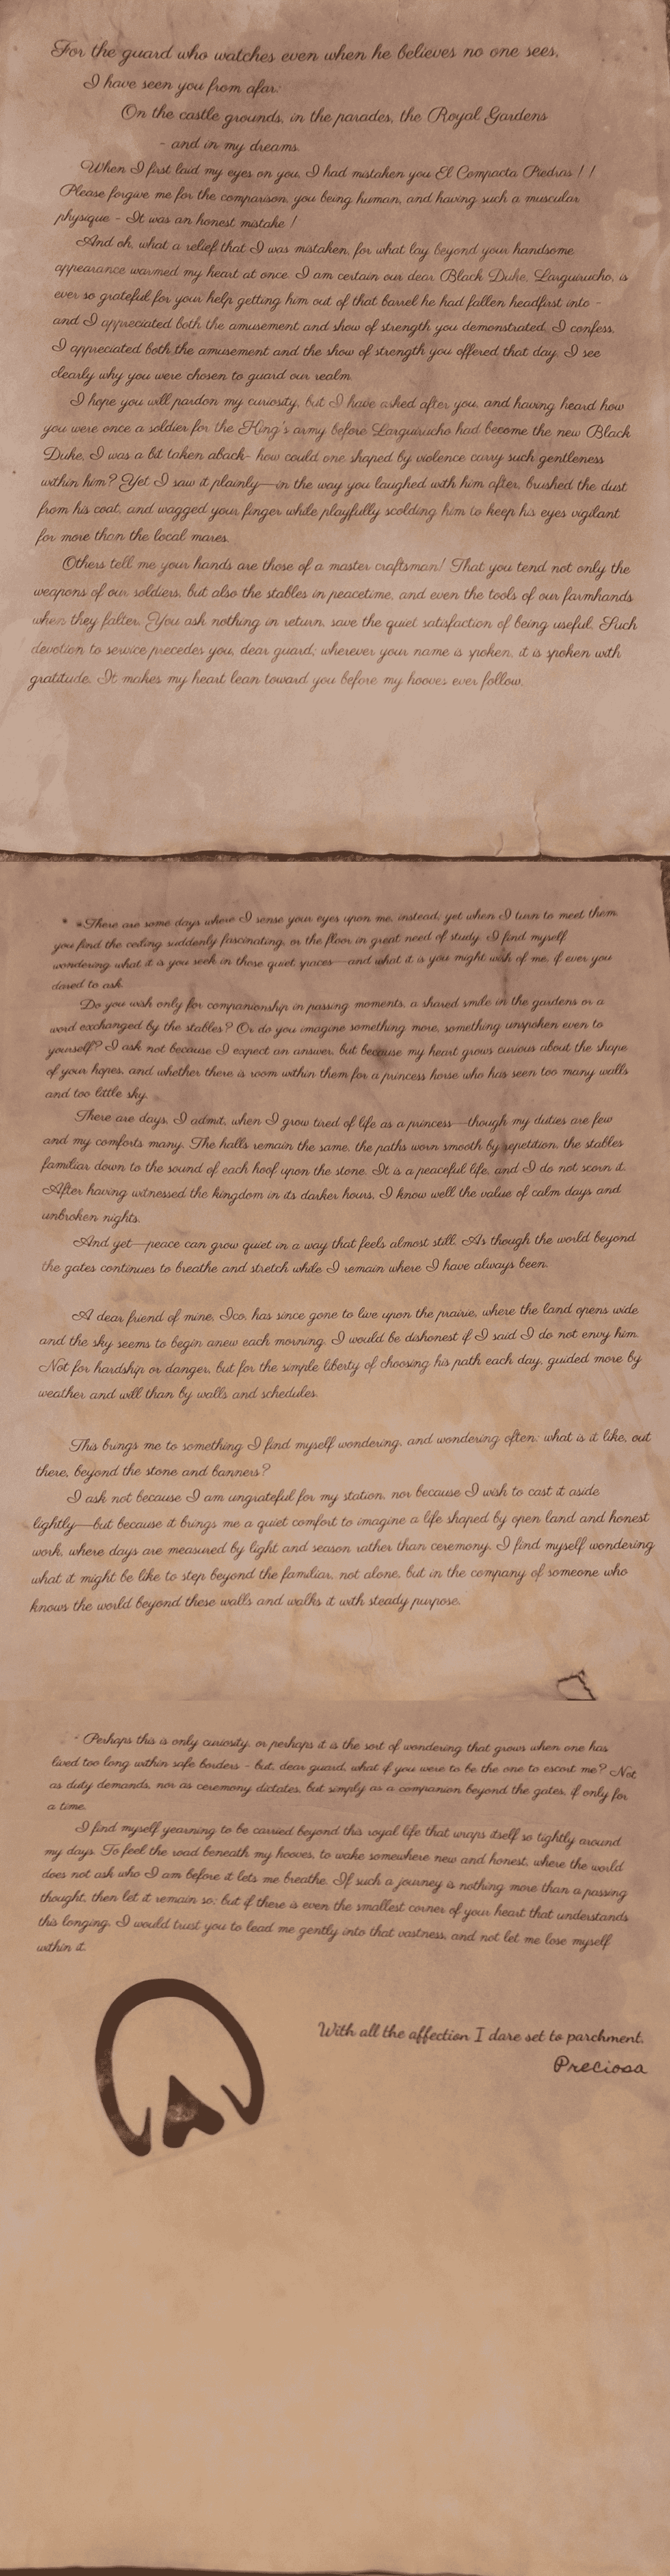 For the guard who watches even when he believes no one sees,
I have seen you from afar:
On the castle grounds, in the parades, the Royal Gardens
- and in my dreams.
When I first laid my eyes on you, I had mistaken you El Compacta Piedras ! !
Please forgive me for the comparison, you being human, and having such a muscular
physique - It was an honest mistake !
And oh, what a relief that I was mistaken, for what lay beyond your handsome
appearance warmed my heart at once. I am certain our dear Black Duke, Larguirucho, is
ever so grateful for your help getting him out of that barrel he had fallen headfirst into -
and I appreciated both the amusement and show of strength you demonstrated, I confess,
I appreciated both the amusement and the show of strength you offered that day, I see
clearly why you were chosen to guard our realm.
I hope you will pardon my curiosity, but I have asked after you, and having heard how
you were once a soldier for the King's army before Larguirucho had become the new Black
Duke, I was a bit taken aback- how could one shaped by violence carry such gentleness
within him? Yet I saw it plainly—in the way you laughed with him after, brushed the dust
from his coat, and wagged your finger while playfully scolding him to keep his eyes vigilant
for more than the local mares.
Others tell me your hands are those of a master craftsman! That you tend not only the
weapons of our soldiers, but also the stables in peacetime, and even the tools of our farmhands
when they falter. You ask nothing in return, save the quiet satisfaction of being useful. Such
devotion to service precedes you, dear guard; wherever your name is spoken, it is spoken with
gratitude. It makes my heart lean toward you before my hooves ever follow.
There are some days where I sense your eyes upon me, instead; yet when I turn to meet them,
you find the ceiling suddenly fascinating, or the floor in great need of study. I find myself
wondering what it is you seek in those quiet spaces—and what it is you might wish of me, if ever you
dared to ask.
Do you wish only for companionship in passing moments, a shared smile in the gardens or a
word exchanged by the stables? Or do you imagine something more, something unspoken even to
yourself? I ask not because I expect an answer, but because my heart grows curious about the shape
of your hopes, and whether there is room within them for a princess horse who has seen too many walls
and too little sky.
There are days, I admit, when I grow tired of life as a princess—though my duties are few
and my comforts many. The halls remain the same, the paths worn smooth by repetition, the stables
familiar down to the sound of each hoof upon the stone. It is a peaceful life, and I do not scorn it.
After having witnessed the kingdom in its darker hours, I know well the value of calm days and
unbroken nights.
And yet—peace can grow quiet in a way that feels almost still. As though the world beyond
the gates continues to breathe and stretch while I remain where I have always been.
A dear friend of mine, Ico, has since gone to live upon the prairie, where the land opens wide
and the sky seems to begin anew each morning. I would be dishonest if I said I do not envy him.
Not for hardship or danger, but for the simple liberty of choosing his path each day, guided more by
weather and will than by walls and schedules.
This brings me to something I find myself wondering, and wondering often: what is it like, out
there, beyond the stone and banners?
I ask not because I am ungrateful for my station, nor because I wish to cast it aside
lightly—but because it brings me a quiet comfort to imagine a life shaped by open land and honest
work, where days are measured by light and season rather than ceremony. I find myself wondering
what it might be like to step beyond the familiar, not alone, but in the company of someone who
knows the world beyond these walls and walks it with steady purpose.
Perhaps this is only curiosity, or perhaps it is the sort of wondering that grows when one has
lived too long within safe borders - but, dear guard, what if you were to be the one to escort me? Not
as duty demands, nor as ceremony dictates, but simply as a companion beyond the gates, if only for
a time.
I find myself yearning to be carried beyond this royal life that wraps itself so tightly around
my days. To feel the road beneath my hooves, to wake somewhere new and honest, where the world
does not ask who I am before it lets me breathe. If such a journey is nothing more than a passing
thought, then let it remain so; but if there is even the smallest corner of your heart that understands
this longing, I would trust you to lead me gently into that vastness, and not let me lose myself
within it.
With all the affection I dare set to parchment,
Preciosa